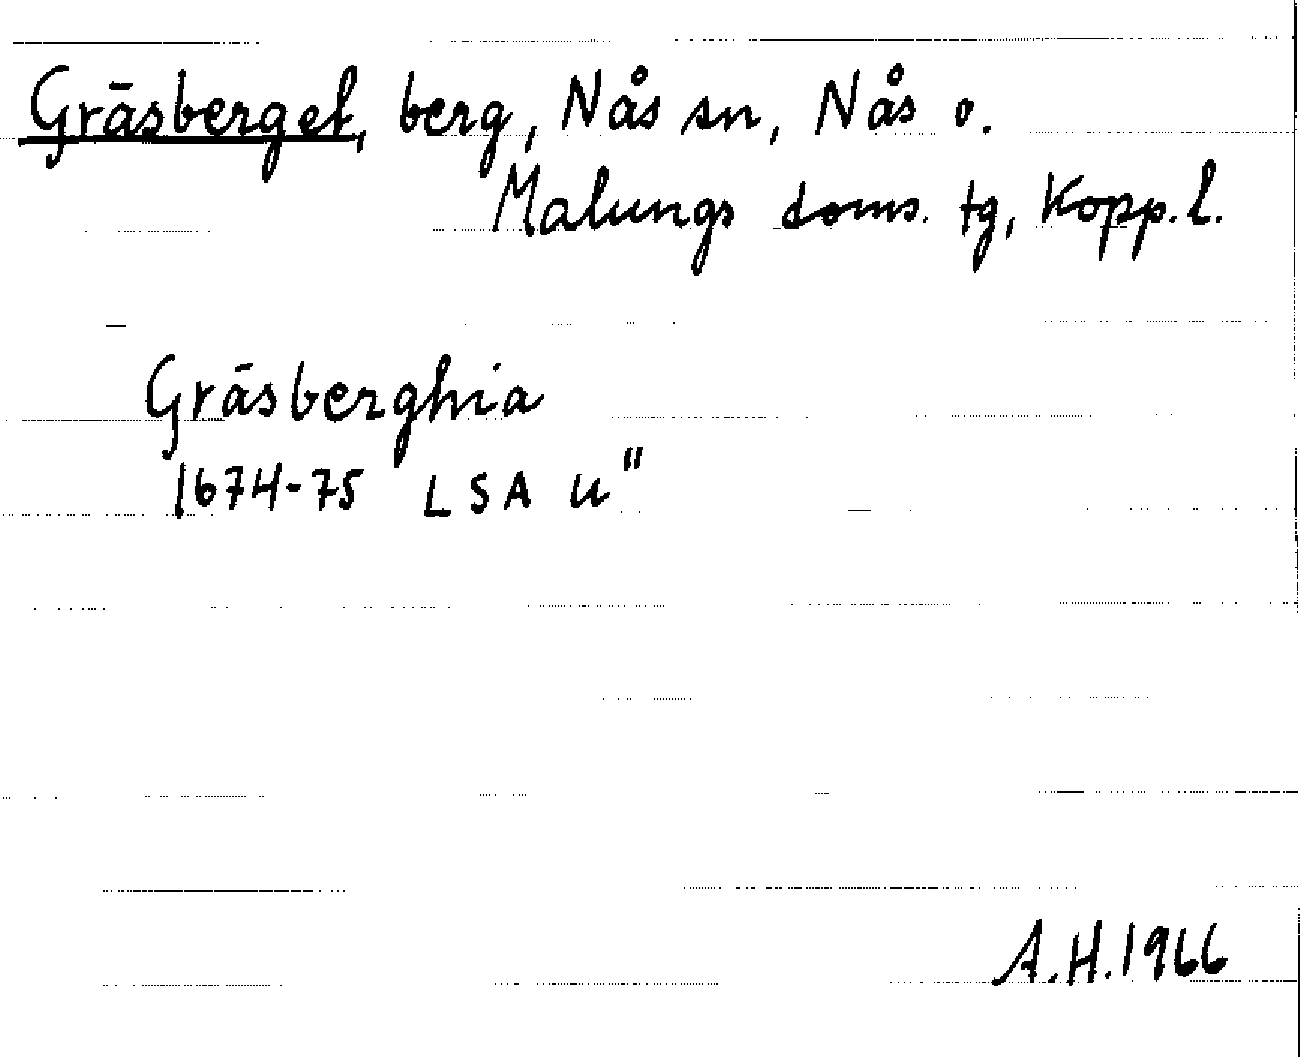 Gräsberget, berg, Nås sn, Nås o.
Malungs doms. tg, Kopp. l.
Gräsberghia
1674-75 LSA U"
A.H. 1966